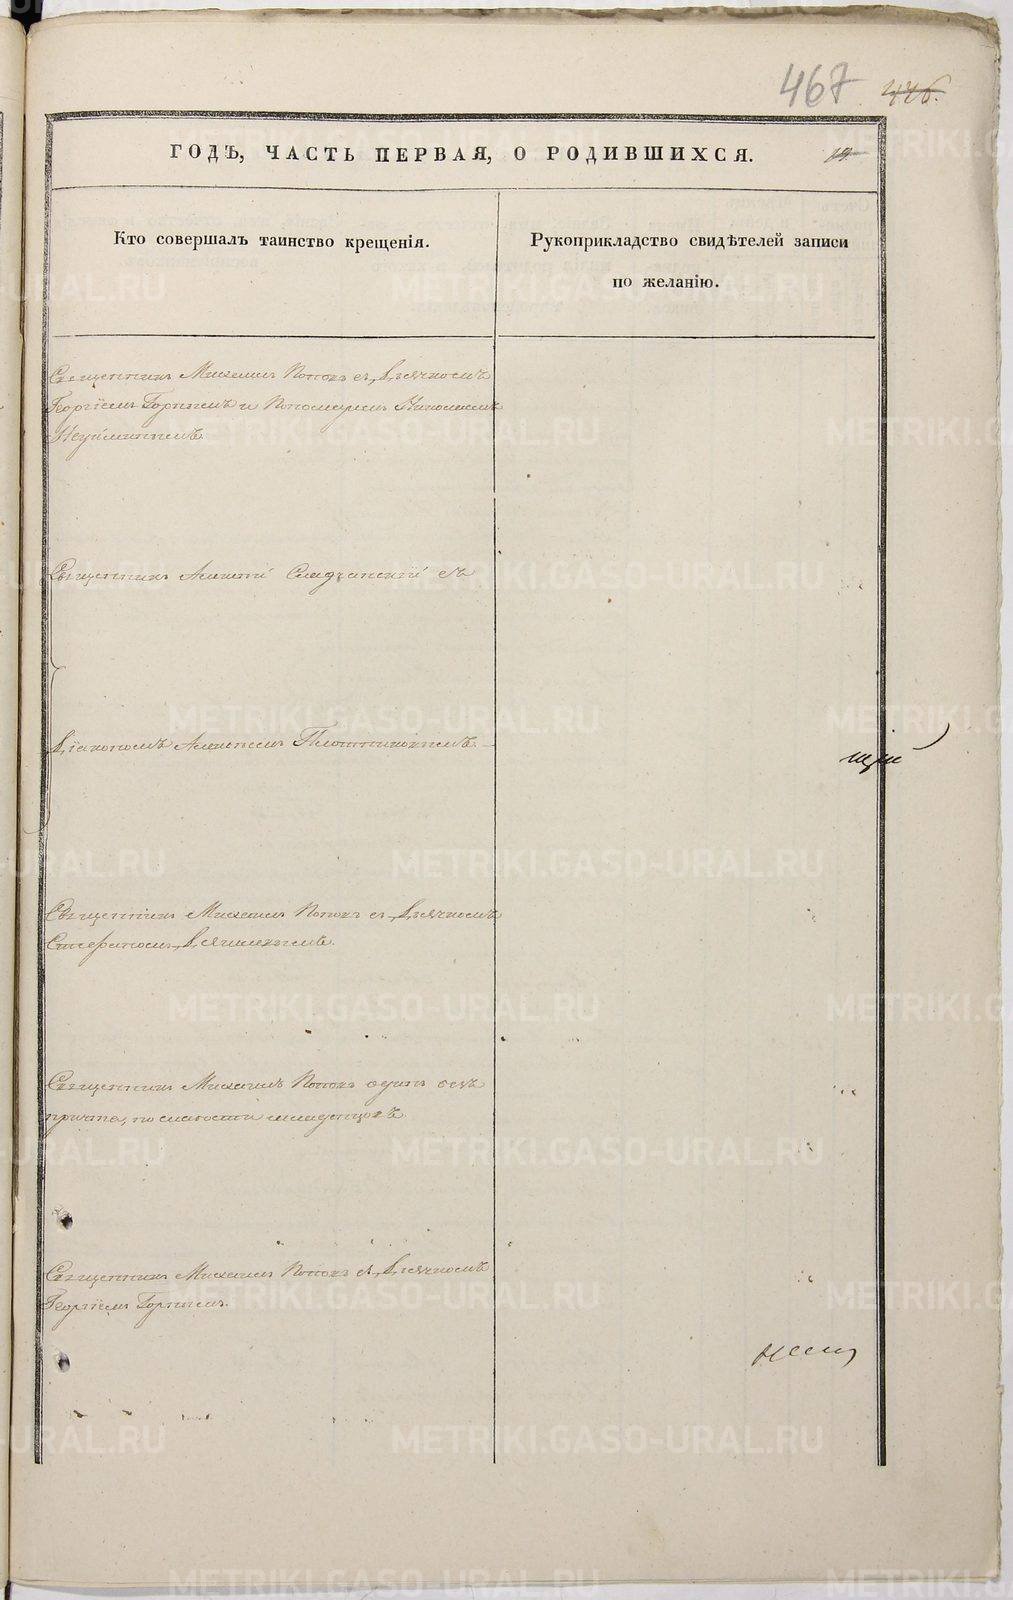 467 426.
ГОДЪ, ЧАСТЬ ПЕРВАЯ, О РОДИВШИХСЯ.
Кто совершалъ таинство крещенія.
Рукоприкладство свидѣтелей записи
по желанію.
Священникъ Михаилъ Поповъ съ Дьячкомъ
Георгіемъ Горнымъ и Пономаремъ Николаемъ
Неуйминымъ
Священникъ Алексѣй съ
Діакономъ Алексѣемъ Плотниковымъ
Священникъ Михаилъ Поповъ съ Дьячкомъ
Стефаномъ
Священникъ Михаилъ Поповъ одинъ безъ
причта, по слабости младенцовъ
Священникъ Михаилъ Поповъ съ Дьячкомъ
Георгіемъ Горнымъ.
METRIKI.GASO-URAL.RU